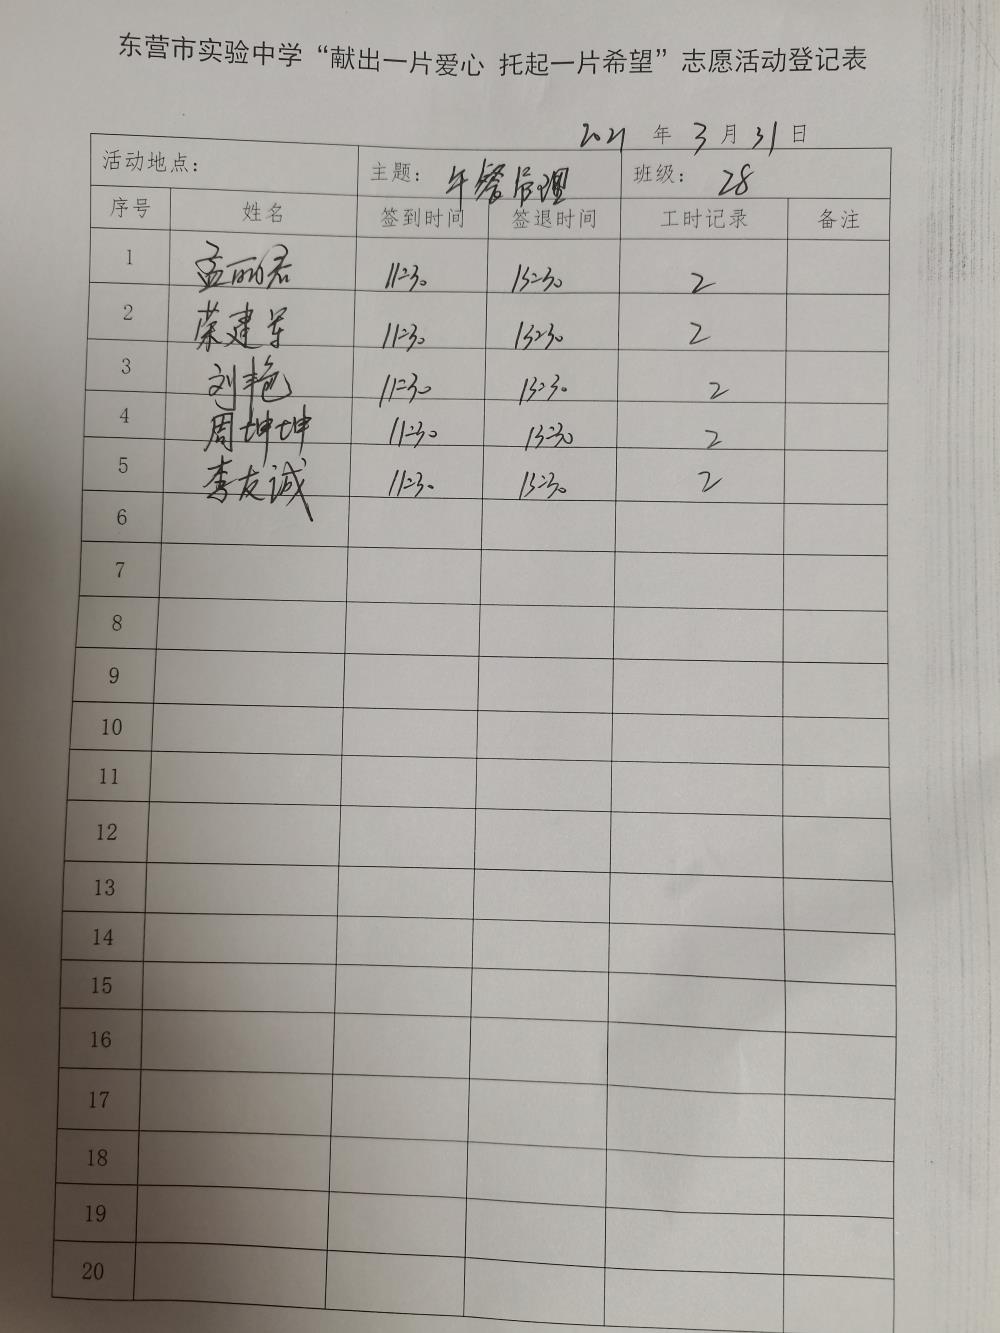 东营市实验中学“献出一片爱心 托起一片希望”志愿活动登记表
2021 年 3 月 31 日
活动地点： 主题：午餐管理 班级：28
序号 姓名 签到时间 签退时间 工时记录 备注
1 孟丽君 11:30 13:30 2
2 荣建军 11:30 13:30 2
3 刘艳 11:30 13:30 2
4 周坤坤 11:30 13:30 2
5 李友诚 11:30 13:30 2
6
7
8
9
10
11
12
13
14
15
16
17
18
19
20